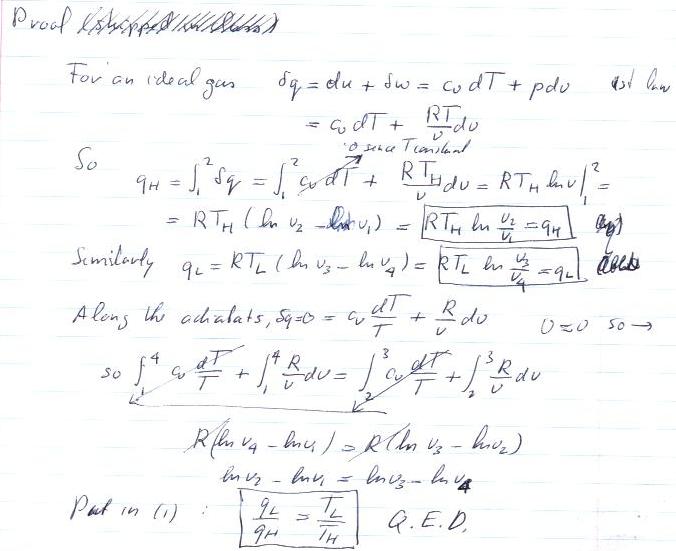 Proof
For an ideal gas δq = du + δw = c_v dT + pdv 1st law
= c_v dT + RT/v dv
0 since T constant
So q_H = ∫₁² δq = ∫₁² c_v dT + RT_H/v dv = RT_H ln v |₁² =
= RT_H (ln v₂ - ln v₁) = RT_H ln v₂/v₁ = q_H
Similarly q_L = RT_L (ln v₃ - ln v₄) = RT_L ln v₃/v₄ = q_L
Along the adiabats, δq=0 = c_v dT/T + R/v dv 0=0 so →
so ∫₁⁴ c_v dT/T + ∫₁⁴ R/v dv = ∫₂³ c_v dT/T + ∫₂³ R/v dv
R(ln v₄ - ln v₁) = R(ln v₃ - ln v₂)
ln v₂ - ln v₁ = ln v₃ - ln v₄
Put in (1) : q_L/q_H = T_L/T_H Q.E.D.